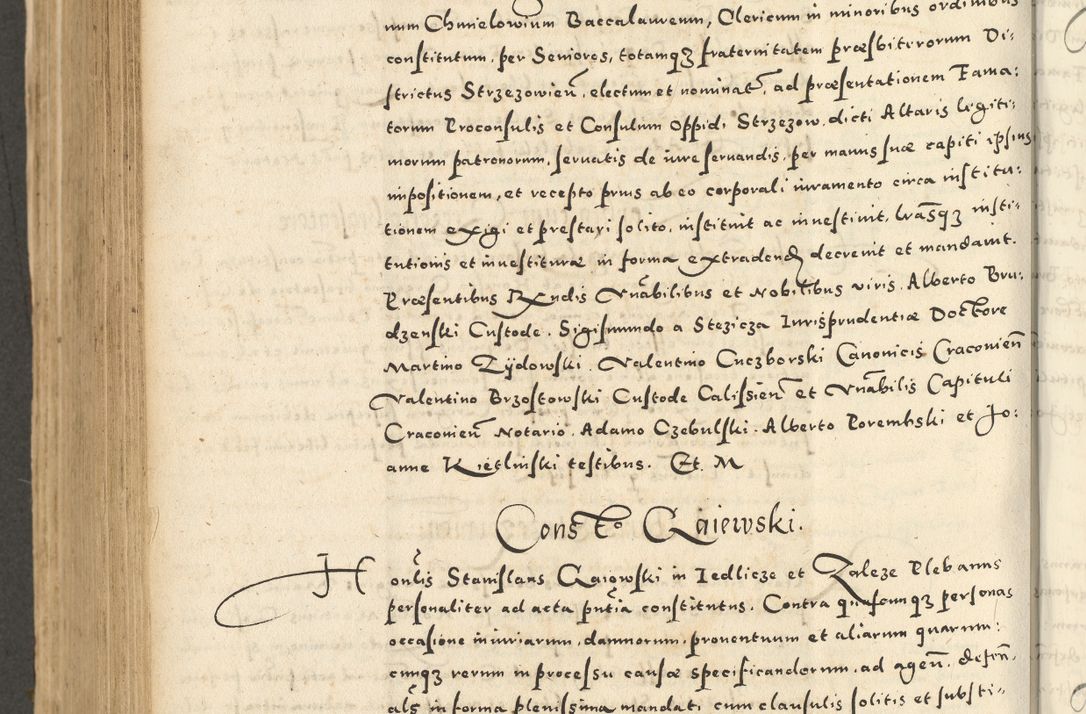 num Chmielowium Baccalaureum, Clericum in minoribus ordinibus
constitutum, per Seniores, totamqȝ fraternitatem præsbiterorum Di-
strictus Strzezowien̄, electum et nominat̄, ad præsentationem Fama:
torum Proconsulis et Consulum Oppidi Strzezow, dicti Altaris legiti:
morum patronorum, seruatis de iure seruandis, per manus suæ capiti ipsius
impositionem, et recepto prius ab eo corporali iuramento circa institu:
tionem exigi et prestari solito, instituit ac inuestiuit, lrāsqȝ insti-
tutionis et inuestituræ in forma extradend decreuit et mandauit.
Præsentibus Rundis Vnābilibus et Nobilibus viris, Alberto Bru:
dzenski Custode, Sigismundo a Stezicza Iurisprudentiæ Doctore
Martino Zydowski, Valentino Cuczborski Canonicis Cracouien̄
Valentino Brzostowski Custode Calissien̄ et Vnābilis Capituli
Cracouien̄ Notario, Adamo Czebulski, Alberto Porembski et Jo:
anne Kietlinski testibus. Et. M
Constō Gaiewski.
Honlis Stanislaus Gaiowski in Iedlicze et Zaleze Plebanus
personaliter ad acta pntia constitutus. Contra quascunqȝ personas
occasione iniuriarum, damnorum, prouentuum et aliarum quarum:
cunqȝ rerum in processu causæ specificandorum, ad agen̄, defen̄,
als in forma plenissima mandati cum clausulis solitis et substi-